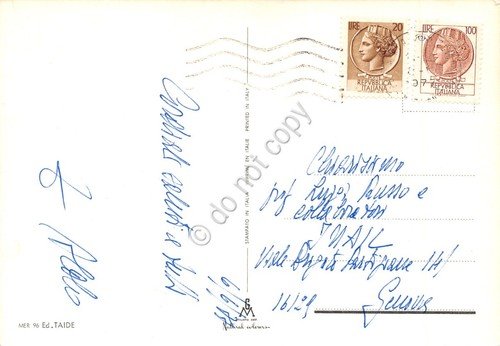 LIRE 20
LIRE 100
REPVBBLICA
ITALIANA
REPVBBLICA
ITALIANA
Cordiali saluti a tutti
PRINTED IN ITALY
IMPRIMÉ EN ITALIE
STAMPATO IN ITALIA
do not copy
Chiarissimo
prof. Luigi Russo e
collaboratori
Viale
14/
16129
Genova
MER 96 Ed. TAIDE